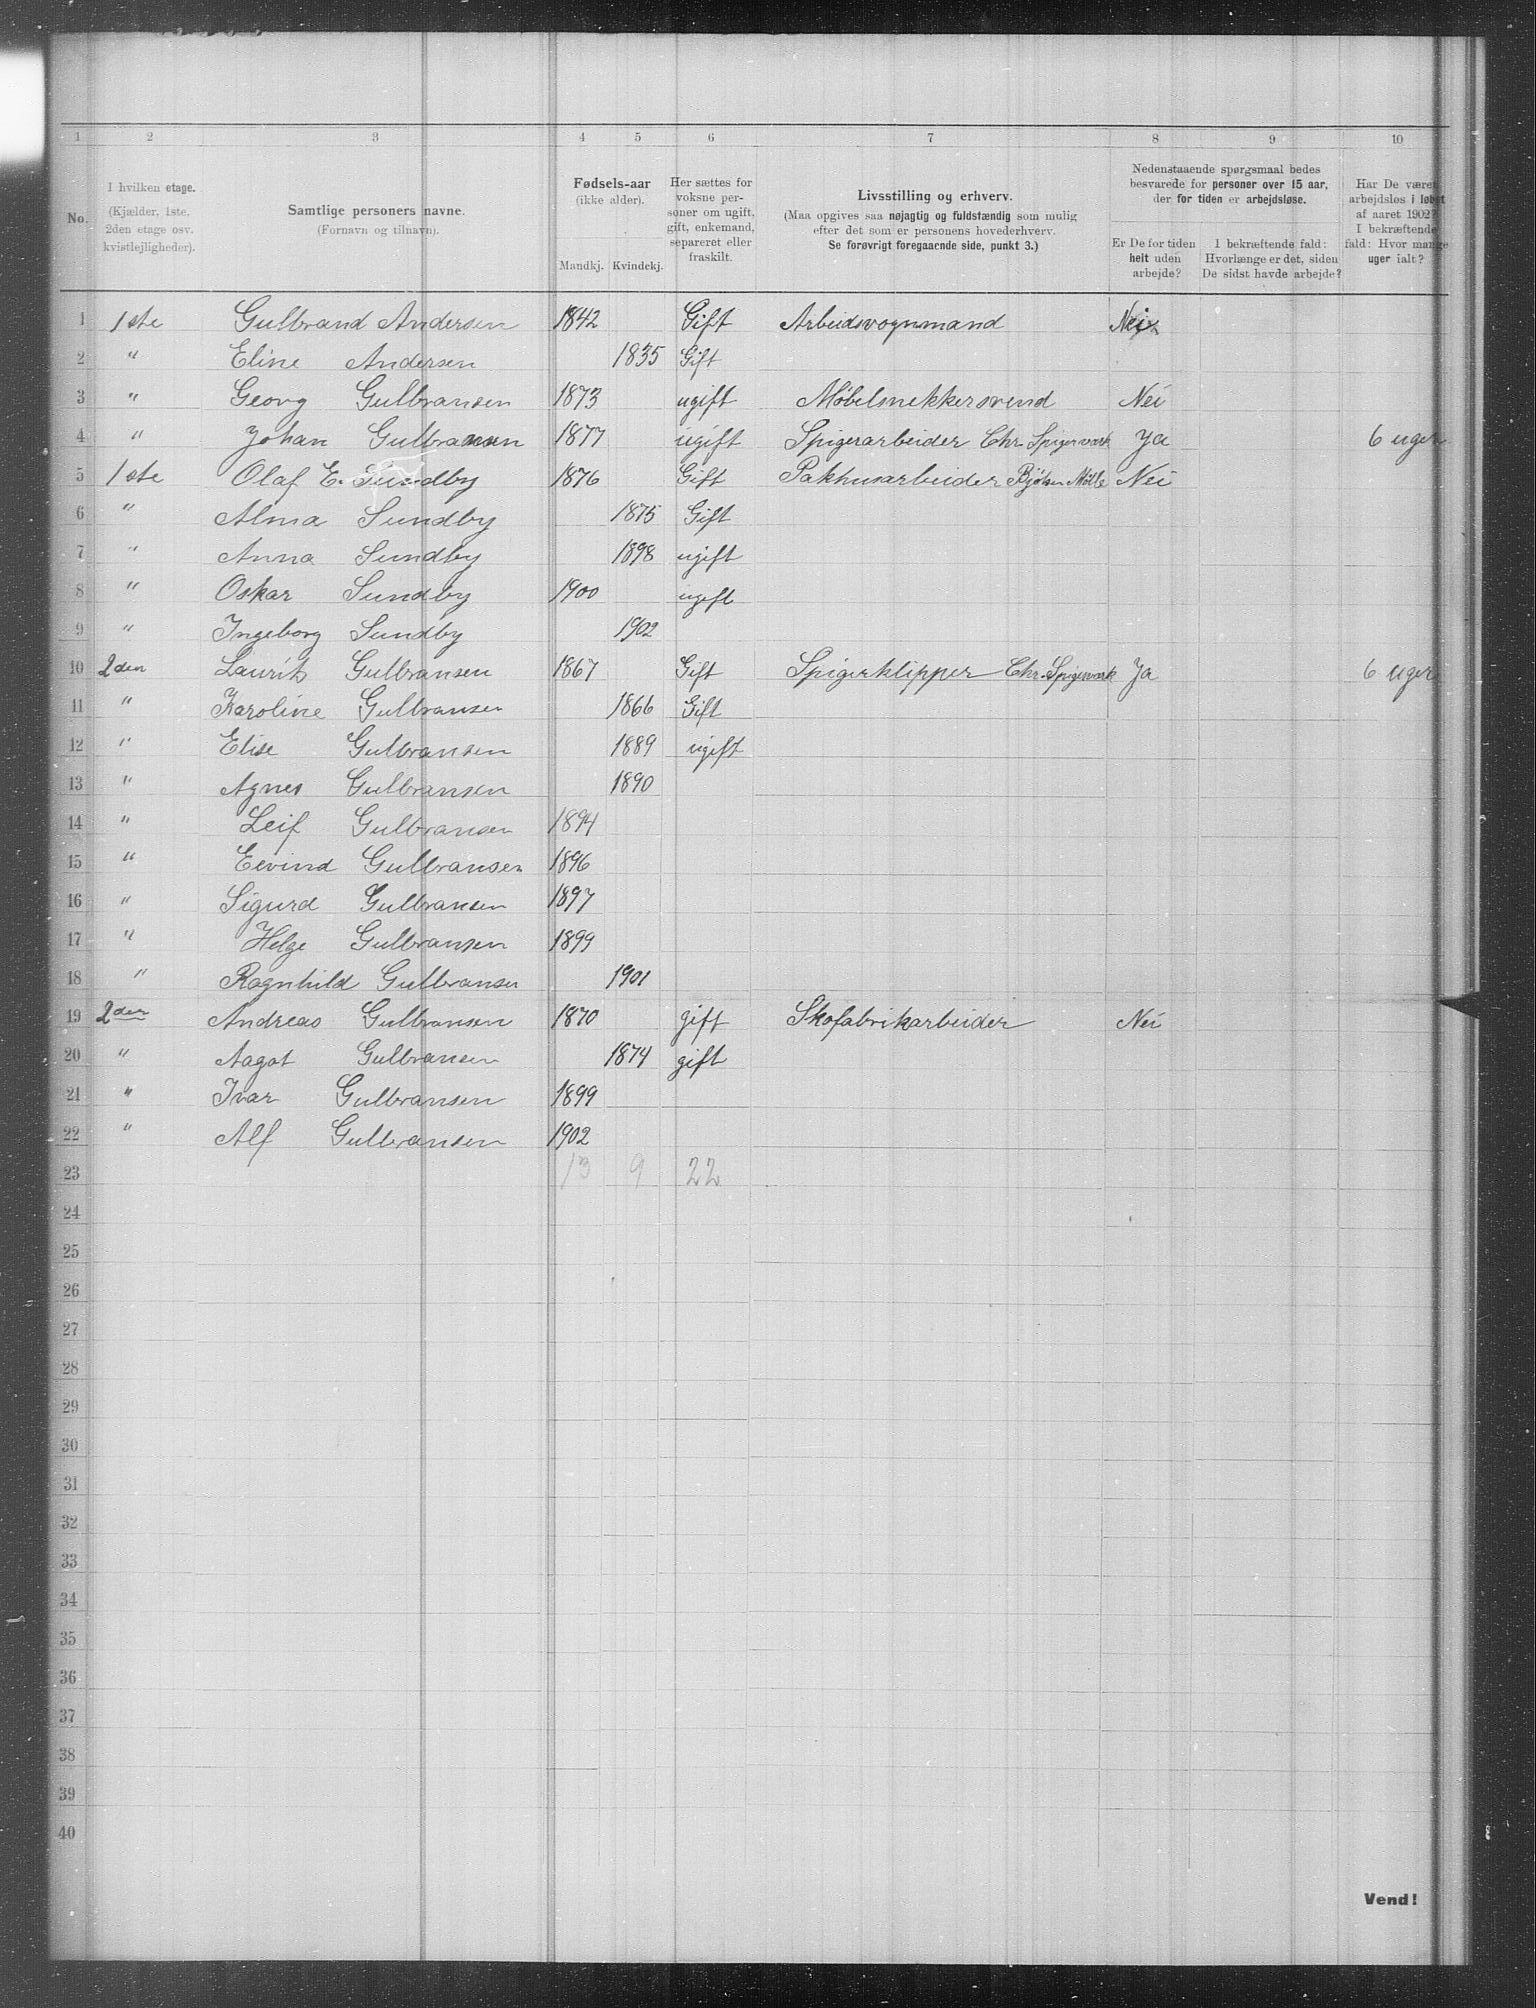 1 2 3 4 5 6 7 8 9 10
No.
I hvilken etage.
(Kjælder, 1ste.
2den etage osv.
kvistlejligheder).
Samtlige personers navne.
(Fornavn og tilnavn).
Fødsels-aar
(ikke alder).
Mandkj. Kvindekj.
Her sættes for
voksne per-
soner om ugift,
gift, enkemand,
separeret eller
fraskilt.
Livsstilling og erhverv.
(Maa opgives saa nøjagtig og fuldstændig som mulig
efter det som er personens hovederhverv.
Se forøvrigt foregaaende side, punkt 3.)
Nedenstaaende spørgsmaal bedes
besvarede for personer over 15 aar,
der for tiden er arbejdsløse.
Er De for tiden
helt uden
arbejde?
I bekræftende fald:
Hvorlænge er det, siden
De sidst havde arbejde?
Har De været
arbejdsløs i løbet
af aaret 1902?
I bekræftende
fald: Hvor mange
uger ialt?
1 1ste Gulbrand Andersen 1842 Gift Arbeidsvognmand Nei
2 " Eline Andersen 1835 Gift
3 " Georg Gulbransen 1873 ugift Møbelsnekkersvend Nei
4 " Johan Gulbransen 1877 ugift Spigerarbeider Chr. Spigerverk Ja 6 uger
5 1ste Olaf E. Sundby 1876 Gift Pakhusarbeider Bjølsen Mølle Nei
6 " Alma Sundby 1875 Gift
7 " Anna Sundby 1898 ugift
8 " Oskar Sundby 1900 ugift
9 " Ingeborg Sundby 1902
10 2den Laurits Gulbransen 1867 Gift Spigerklipper Chr. Spigerverk Ja 6 uger
11 " Karoline Gulbransen 1866 Gift
12 " Elise Gulbransen 1889 ugift
13 " Agnes Gulbransen 1890
14 " Leif Gulbransen 1894
15 " Eevind Gulbransen 1896
16 " Sigurd Gulbransen 1897
17 " Helge Gulbransen 1899
18 " Ragnhild Gulbransen 1901
19 2den Andreas Gulbransen 1870 gift Skofabrikarbeider Nei
20 " Aagot Gulbransen 1874 gift
21 " Ivar Gulbransen 1899
22 " Alf Gulbransen 1902
23 13 9 22
24
25
26
27
28
29
30
31
32
33
34
35
36
37
38
39
40
Vend!